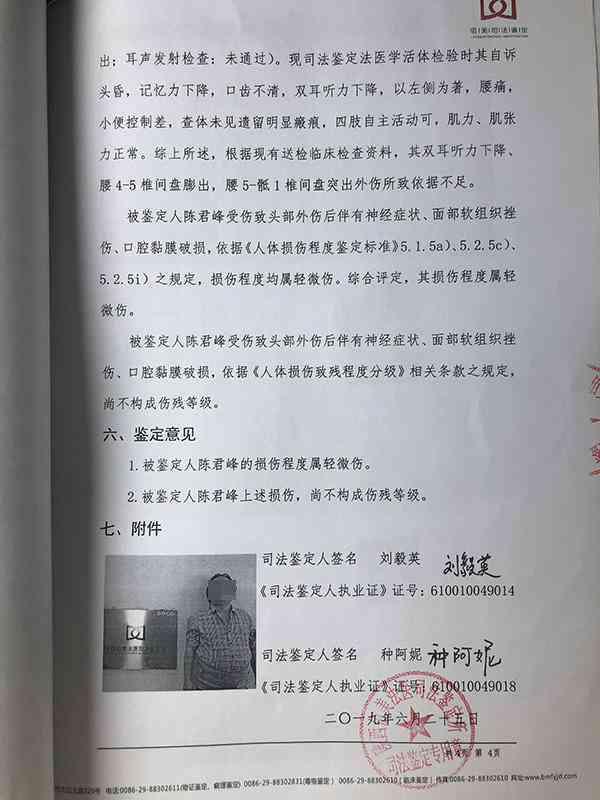 佰美司法鉴定
出；耳声发射检查：未通过）。现司法鉴定法医学活体检验时其自诉
头昏，记忆力下降，口齿不清，双耳听力下降，以左侧为著，腰痛，
小便控制差，查体未见遗留明显瘢痕，四肢自主活动可，肌力、肌张
力正常。综上所述，根据现有送检临床检查资料，其双耳听力下降、
腰4-5椎间盘膨出，腰5-骶1椎间盘突出外伤所致依据不足。
被鉴定人陈君峰受伤致头部外伤后伴有神经症状、面部软组织挫
伤、口腔黏膜破损，依据《人体损伤程度鉴定标准》5.1.5a）、5.2.5c）、
5.2.5i）之规定，损伤程度均属轻微伤。综合评定，其损伤程度属轻
微伤。
被鉴定人陈君峰受伤致头部外伤后伴有神经症状、面部软组织挫
伤、口腔黏膜破损，依据《人体损伤致残程度分级》相关条款之规定，
尚不构成伤残等级。
六、鉴定意见
1.被鉴定人陈君峰的损伤程度属轻微伤。
2.被鉴定人陈君峰上述损伤，尚不构成伤残等级。
七、附件
司法鉴定人签名 刘毅英 刘毅英
《司法鉴定人执业证》证号：610010049014
司法鉴定人签名 种阿妮 种阿妮
《司法鉴定人执业证》证号：610010049018
二〇一九年六月二十五日
司法鉴定专用章
共4页 第4页
电话:0086-29-88302611(物证鉴定、病理鉴定) 0086-29-88302831(毒物鉴定) 0086-29-88302610(临床鉴定) 传真:0086-29-88302610 网址:www.bmfyjd.com